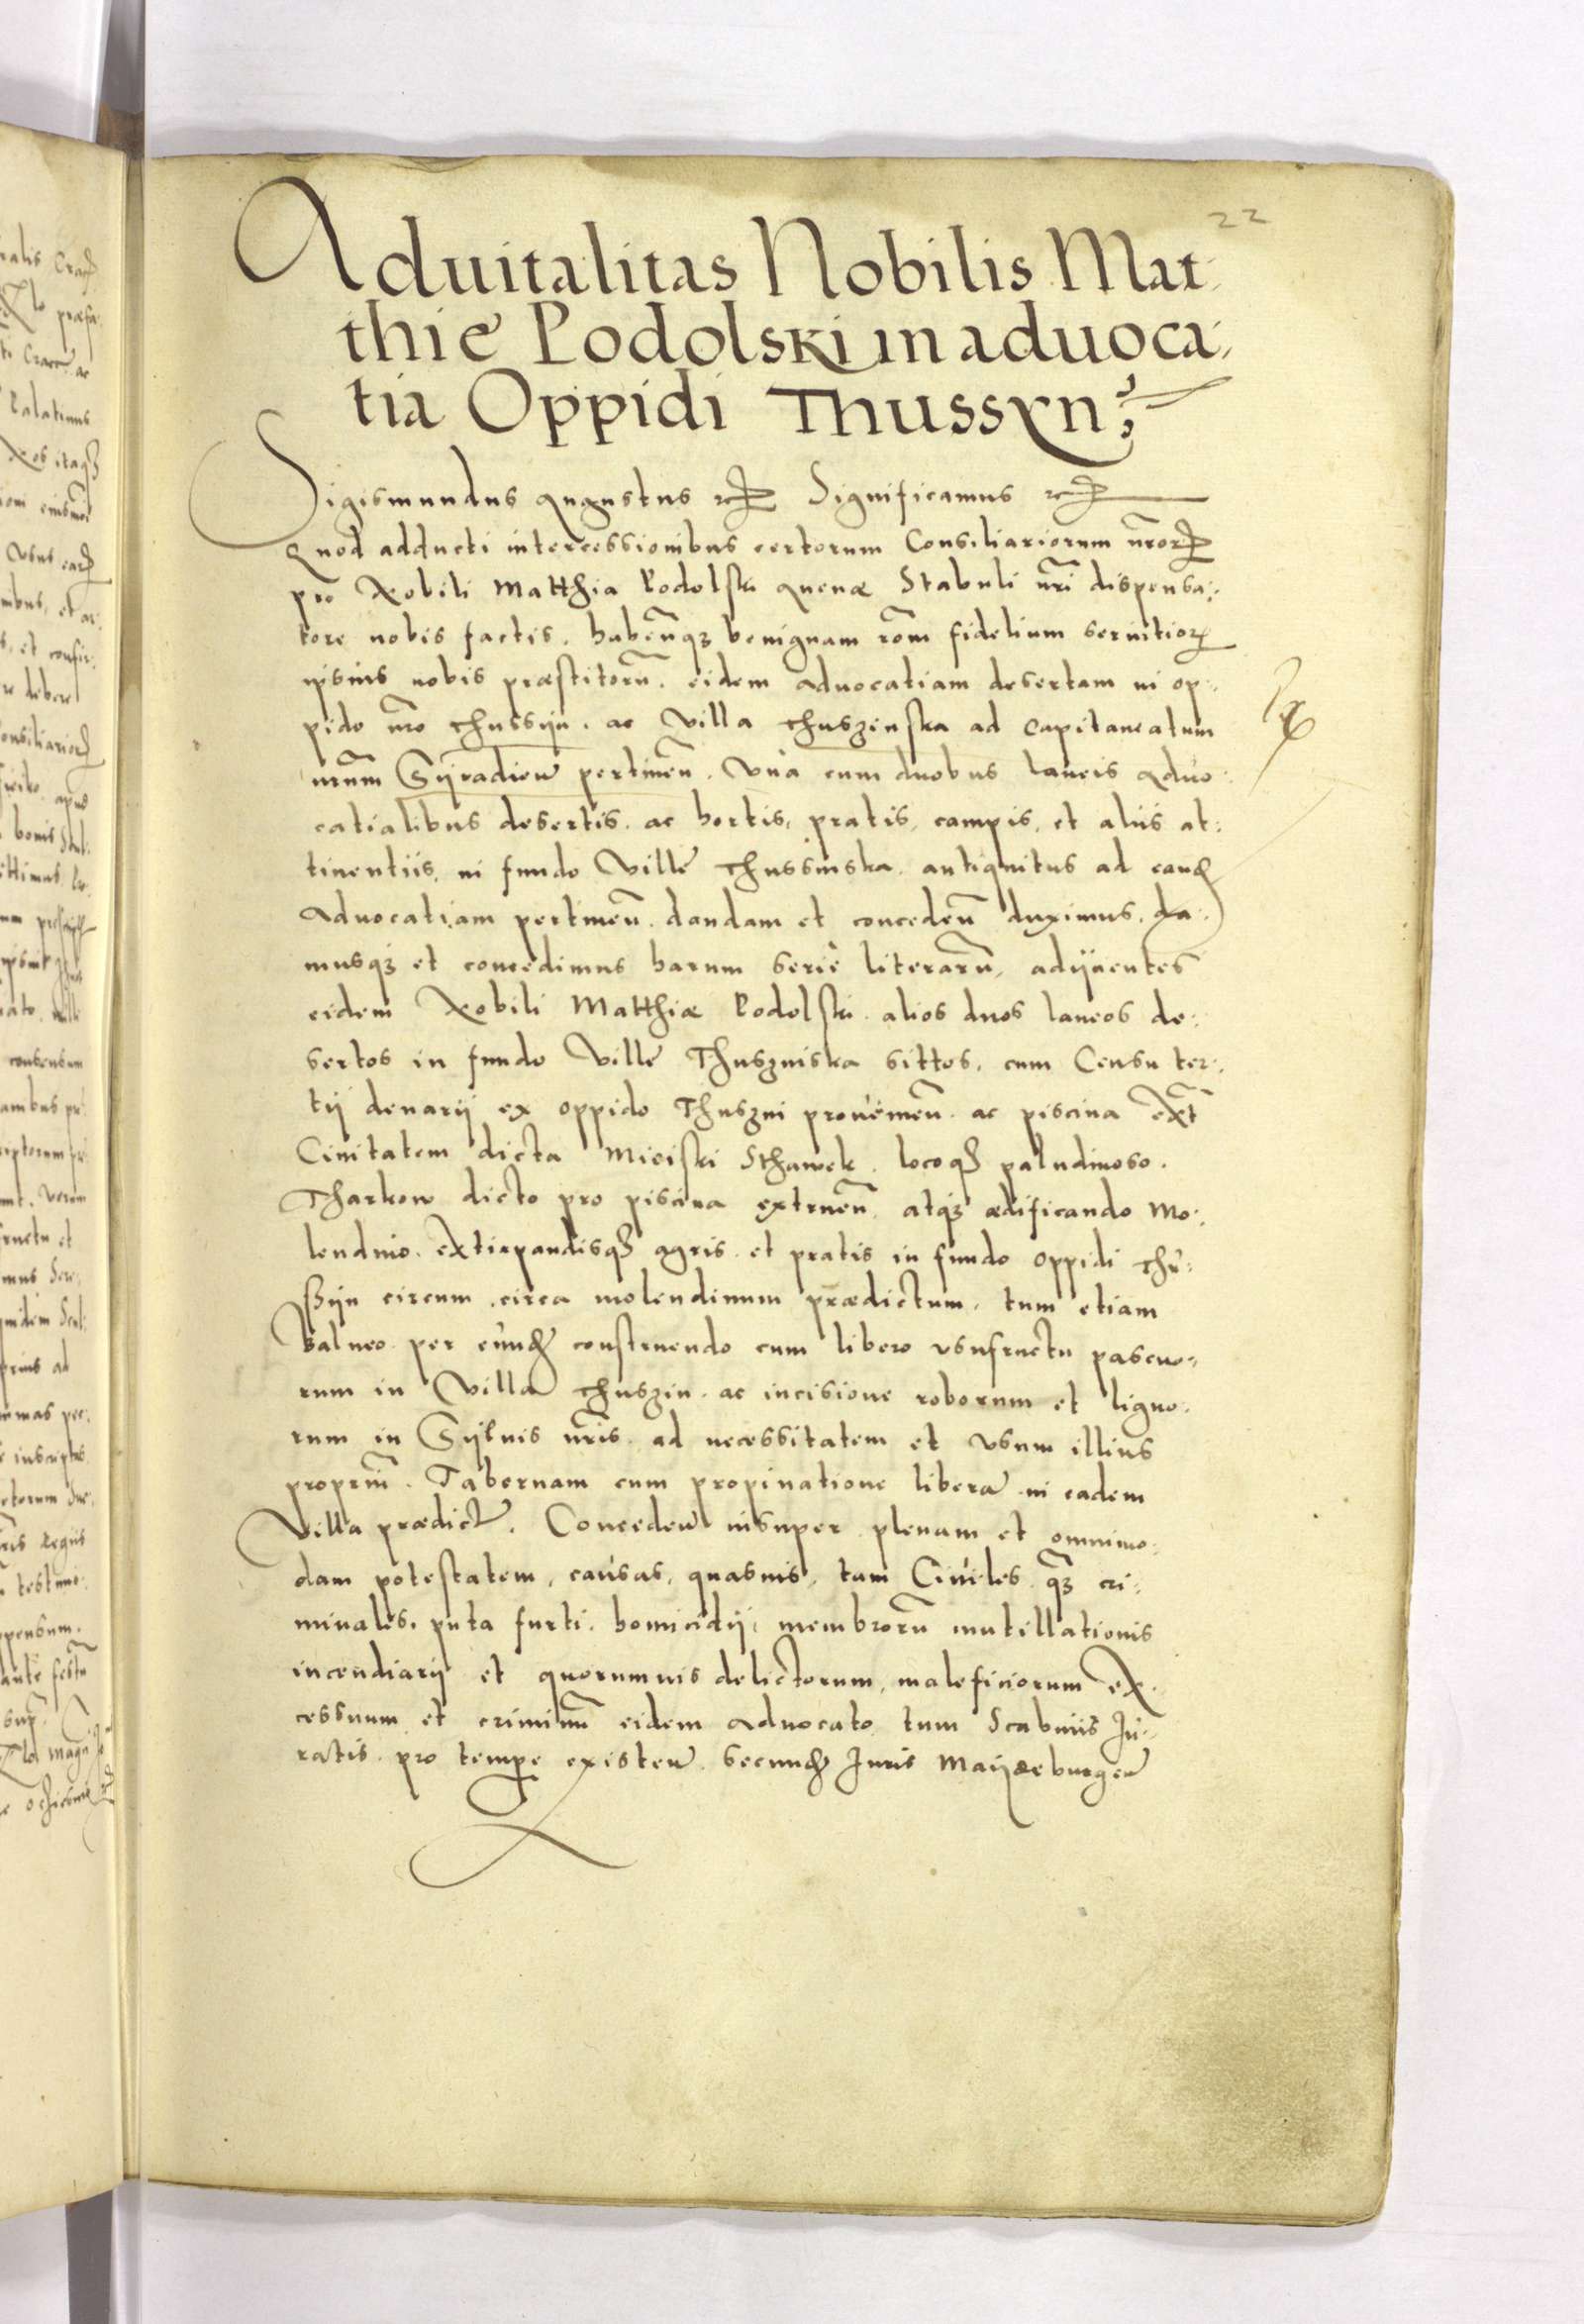 22
Aduitalitas Nobilis Mat-
thie Podolski in aduoca-
tia Oppidi Thussyn
Sigismundus Augustus etc Significamus etc
Quod adducti intercessionibus certorum Consiliariorum nrorum
pro Nobili Matthia Podolski auenae Stabuli nri dispensa-
tore nobis factis. habenq3 benignam rom fidelium seruitiorum
ipsius nobis praestitoru. eidem Aduocatiam desertam in op-
pido nro Thussyn. ac Villa Thuszinska ad Capitaneatum
nrum Syradien pertinen. Vna cum duobus laneis Aduo-
catialibus desertis. ac hortis, pratis, campis, et aliis at-
tinentiis, in fundo Ville Thussinska antiquitus ad eand
Aduocatiam pertinen. dandam et conceden duximus, da-
musq3 et concedimus harum serie literaru, adijcentes
eidem Nobili Matthiae Podolski alios duos laneos de-
sertos in fundo Ville Thusziniska sittos, cum Censu ter-
tij denarij ex oppido Thuszin prouenien. ac piscina ext
Ciuitatem dicta Mieiski Sthawek. locoq3 paludinoso.
Tharkow dicto pro piscina extruen. atq3 aedificando Mo-
lendino. extirpandisq3 agris et pratis in fundo oppidi Thu-
ssyn circum circa molendinum praedictum, tum etiam
Balneo per eund construendo cum libero vsufructu pascuo-
rum in Villa Thuszin. ac incisione roborum et ligno-
rum in Syluis nris ad necessitatem et vsum illius
proprium. Tabernam cum propinatione libera in eadem
Villa praedict. Conceden insuper plenam et omnimo-
dam potestatem, causas, quasuis, tam Ciuiles q3 cri-
minales, puta furti, homicidij, membroru mutillationis
incendiarij et quorumuis delictorum, maleficiorum ex-
cessuum et criminu eidem Aduocato tum Scabinis Ju-
ratis pro tempe existen. secund Juris Maydeburgen